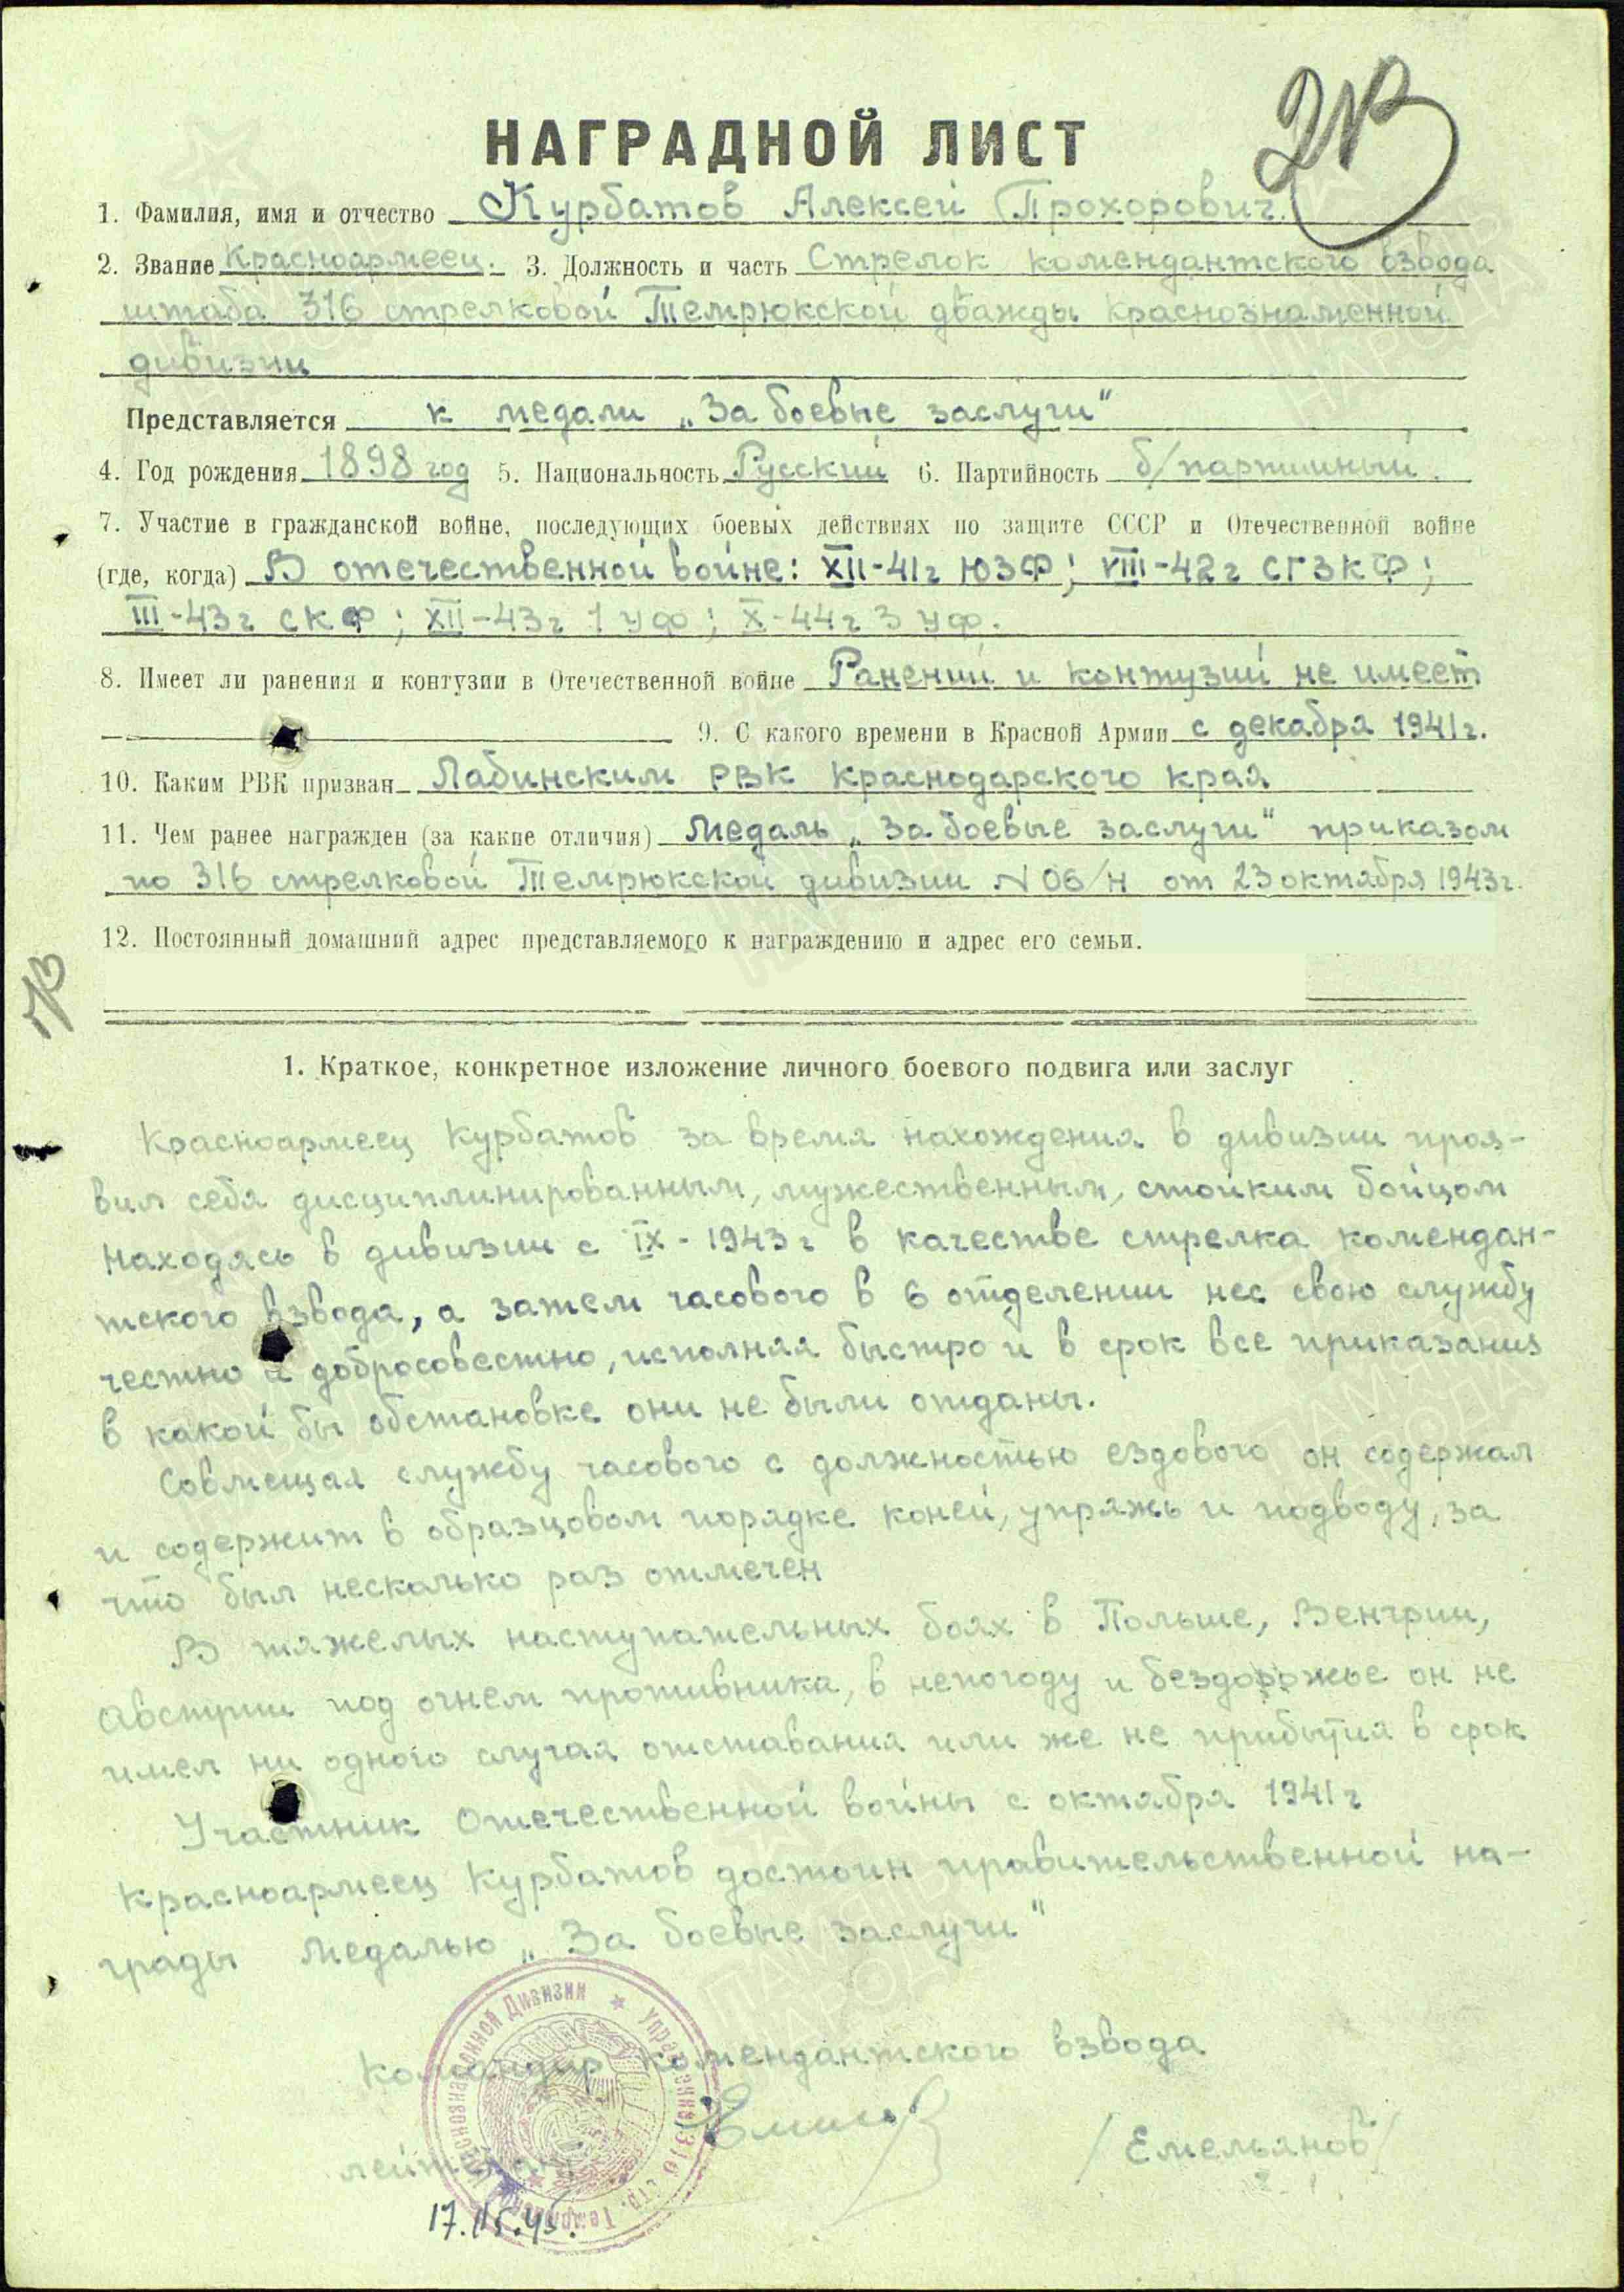 НАГРАДНОЙ ЛИСТ
1. Фамилия, имя и отчество Курбатов Алексей Прохорович.
2. Звание Красноармеец. 3. Должность и часть Стрелок комендантского взвода
штаба 316 стрелковой Темрюкской дважды краснознаменной
дивизии
Представляется к медали „За боевые заслуги"
4. Год рождения 1898 год 5. Национальность Русский 6. Партийность б/партийный.
7. Участие в гражданской войне, последующих боевых действиях по защите СССР и Отечественной войне
(где, когда) В отечественной войне: XII-41г ЮЗФ; VIII-42г СГЗКФ;
III-43г СКФ; XII-43г 1 УФ; X-44г 3 УФ.
8. Имеет ли ранения и контузии в Отечественной войне Ранений и контузий не имеет
9. С какого времени в Красной Армии с декабря 1941г.
10. Каким РВК призван Лабинским РВК Краснодарского края
11. Чем ранее награжден (за какие отличия) Медаль „За боевые заслуги" приказом
по 316 стрелковой Темрюкской дивизии N 06/н от 23 октября 1943г.
12. Постоянный домашний адрес представляемого к награждению и адрес его семьи.
1. Краткое, конкретное изложение личного боевого подвига или заслуг
Красноармеец Курбатов за время нахождения в дивизии проя-
вил себя дисциплинированным, мужественным, стойким бойцом
Находясь в дивизии с IX-1943г в качестве стрелка комендан-
тского взвода, а затем часового в 6 отделении нес свою службу
честно и добросовестно, исполняя быстро и в срок все приказания
в какой бы обстановке они не были отданы.
Совмещая службу часового с должностью ездового он содержал
и содержит в образцовом порядке коней, упряжь и подводу, за
что был несколько раз отмечен
В тяжелых наступательных боях в Польше, Венгрии,
Австрии под огнем противника, в непогоду и бездорожье он не
имел ни одного случая отставания или же не прибытия в срок
Участник Отечественной войны с октября 1941г
Красноармеец Курбатов достоин правительственной на-
грады Медалью „За боевые заслуги"
Командир комендантского взвода
лейтенант
/Емельянов/
17.05.45.